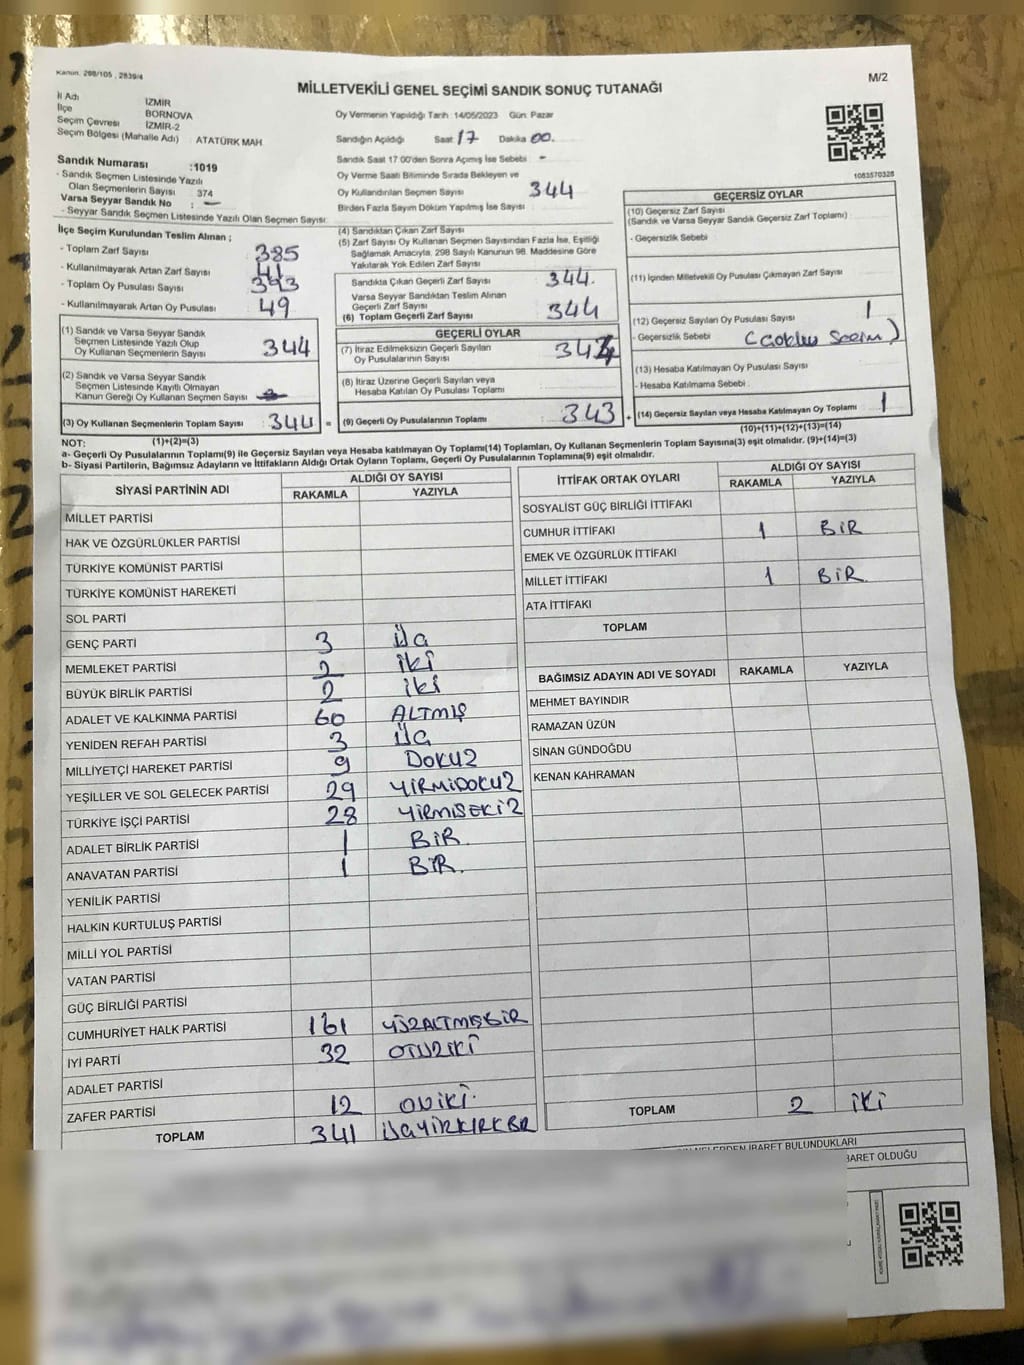 Kanun. 298/105 , 2839/4
M/2
MİLLETVEKİLİ GENEL SEÇİMİ SANDIK SONUÇ TUTANAĞI
İl Adı İZMİR
İlçe BORNOVA
Seçim Çevresi İZMİR-2
Seçim Bölgesi (Mahalle Adı) ATATÜRK MAH
Sandık Numarası :1019
- Sandık Seçmen Listesinde Yazılı
Olan Seçmenlerin Sayısı : 374
Varsa Seyyar Sandık No : -
- Seyyar Sandık Seçmen Listesinde Yazılı Olan Seçmen Sayısı:
Oy Vermenin Yapıldığı Tarih 14/05/2023 Gün: Pazar
Sandığın Açıldığı Saat 17 Dakika 00.
Sandık Saat 17:00'den Sonra Açımış İse Sebebi -
Oy Verme Saati Bitiminde Sırada Bekleyen ve
Oy Kullandırılan Seçmen Sayısı 344
Birden Fazla Sayım Döküm Yapılmış İse Sayısı
1083570328
İlçe Seçim Kurulundan Teslim Alınan ;
- Toplam Zarf Sayısı 385
- Kullanılmayarak Artan Zarf Sayısı 41
- Toplam Oy Pusulası Sayısı 393
- Kullanılmayarak Artan Oy Pusulası 49
(1) Sandık ve Varsa Seyyar Sandık
Seçmen Listesinde Yazılı Olup
Oy Kullanan Seçmenlerin Sayısı 344
(2) Sandık ve Varsa Seyyar Sandık
Seçmen Listesinde Kayıtlı Olmayan
Kanun Gereği Oy Kullanan Seçmen Sayısı
(3) Oy Kullanan Seçmenlerin Toplam Sayısı : 344 =
(4) Sandıktan Çıkan Zarf Sayısı
(5) Zarf Sayısı Oy Kullanan Seçmen Sayısından Fazla İse, Eşitliği
Sağlamak Amacıyla, 298 Sayılı Kanunun 98. Maddesine Göre
Yakılarak Yok Edilen Zarf Sayısı
Sandıkta Çıkan Geçerli Zarf Sayısı 344.
Varsa Seyyar Sandıktan Teslim Alınan
Geçerli Zarf Sayısı
(6) Toplam Geçerli Zarf Sayısı 344
GEÇERLİ OYLAR
(7) İtiraz Edilmeksizin Geçerli Sayılan
Oy Pusulalarının Sayısı
(8) İtiraz Üzerine Geçerli Sayılan veya
Hesaba Katılan Oy Pusulası Toplamı
(9) Geçerli Oy Pusulalarının Toplamı : 343 +
GEÇERSİZ OYLAR
(10) Geçersiz Zarf Sayısı
(Sandık ve Varsa Seyyar Sandık Geçersiz Zarf Toplamı)
- Geçersizlik Sebebi
(11) İçinden Milletvekili Oy Pusulası Çıkmayan Zarf Sayısı
(12) Geçersiz Sayılan Oy Pusulası Sayısı 1
- Geçersizlik Sebebi
(13) Hesaba Katılmayan Oy Pusulası Sayısı
- Hesaba Katılmama Sebebi
(14) Geçersiz Sayılan veya Hesaba Katılmayan Oy Toplamı 1
NOT: (1)+(2)=(3)
(10)+(11)+(12)+(13)=(14)
a- Geçerli Oy Pusulalarının Toplamı(9) ile Geçersiz Sayılan veya Hesaba katılmayan Oy Toplamı(14) Toplamları, Oy Kullanan Seçmenlerin Toplam Sayısına(3) eşit olmalıdır. (9)+(14)=(3)
b- Siyasi Partilerin, Bağımsız Adayların ve İttifakların Aldığı Ortak Oyların Toplamı, Geçerli Oy Pusulalarının Toplamına(9) eşit olmalıdır.
SİYASİ PARTİNİN ADI ALDIĞI OY SAYISI
RAKAMLA YAZIYLA
MİLLET PARTİSİ
HAK VE ÖZGÜRLÜKLER PARTİSİ
TÜRKİYE KOMÜNİST PARTİSİ
TÜRKİYE KOMÜNİST HAREKETİ
SOL PARTİ
GENÇ PARTİ 3 ÜÇ
MEMLEKET PARTİSİ 2 İKİ
BÜYÜK BİRLİK PARTİSİ 2 İKİ
ADALET VE KALKINMA PARTİSİ 60 ALTMIŞ
YENİDEN REFAH PARTİSİ 3 ÜÇ
MİLLİYETÇİ HAREKET PARTİSİ 9 DOKUZ
YEŞİLLER VE SOL GELECEK PARTİSİ 29 YİRMİDOKUZ
TÜRKİYE İŞÇİ PARTİSİ 28 YİRMİSEKİZ
ADALET BİRLİK PARTİSİ 1 BİR.
ANAVATAN PARTİSİ 1 BİR.
YENİLİK PARTİSİ
HALKIN KURTULUŞ PARTİSİ
MİLLİ YOL PARTİSİ
VATAN PARTİSİ
GÜÇ BİRLİĞİ PARTİSİ
CUMHURİYET HALK PARTİSİ 161 YÜZALTMIŞBİR
İYİ PARTİ 32 OTUZİKİ
ADALET PARTİSİ
ZAFER PARTİSİ 12 ONİKİ.
TOPLAM 341 ÜÇYÜZKIRKBİR
İTTİFAK ORTAK OYLARI ALDIĞI OY SAYISI
RAKAMLA YAZIYLA
SOSYALİST GÜÇ BİRLİĞİ İTTİFAKI
CUMHUR İTTİFAKI 1 BİR
EMEK VE ÖZGÜRLÜK İTTİFAKI
MİLLET İTTİFAKI 1 BİR
ATA İTTİFAKI
TOPLAM
BAĞIMSIZ ADAYIN ADI VE SOYADI RAKAMLA YAZIYLA
MEHMET BAYINDIR
RAMAZAN ÜZÜN
SİNAN GÜNDOĞDU
KENAN KAHRAMAN
TOPLAM 2 İKİ
NELERDEN İBARET BULUNDUKLARI
BARET OLDUĞU